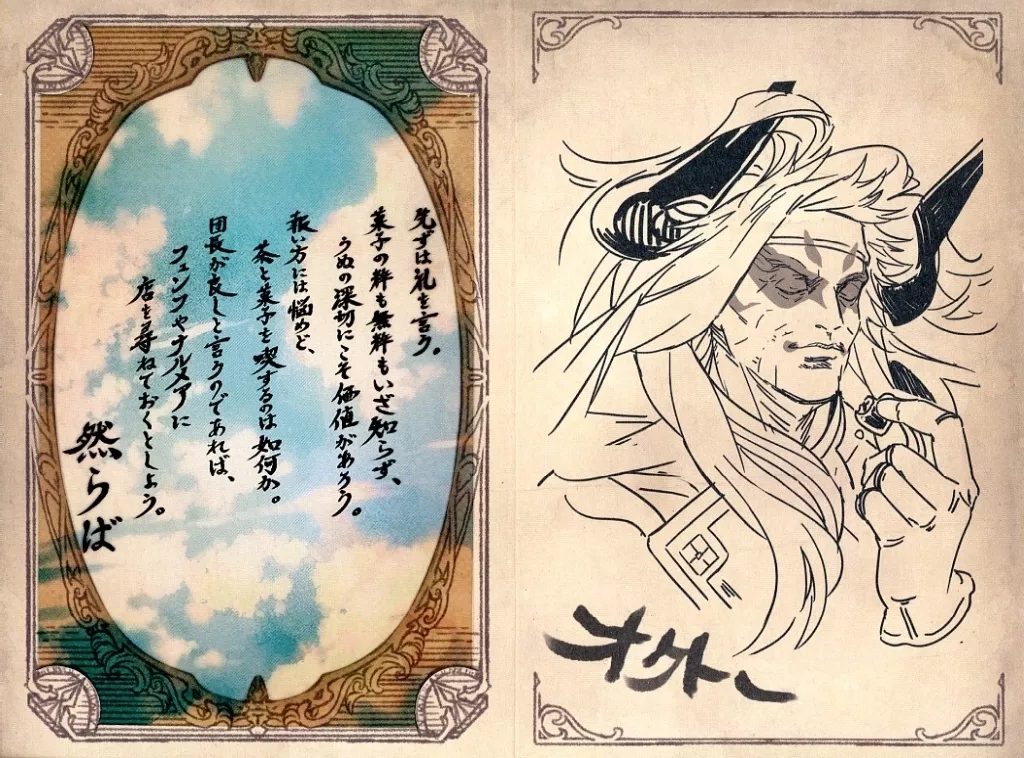 先ずは礼を言う。
菓子の粋も無粋もいざ知らず、
うぬの深切にこそ価値があろう。
報い方には悩めど、
茶と菓子を喫するのは如何か。
団長が良しと言うのであれば、
フェンフやナルメアに
店を尋ねておくとしよう。
然らば
オクトー